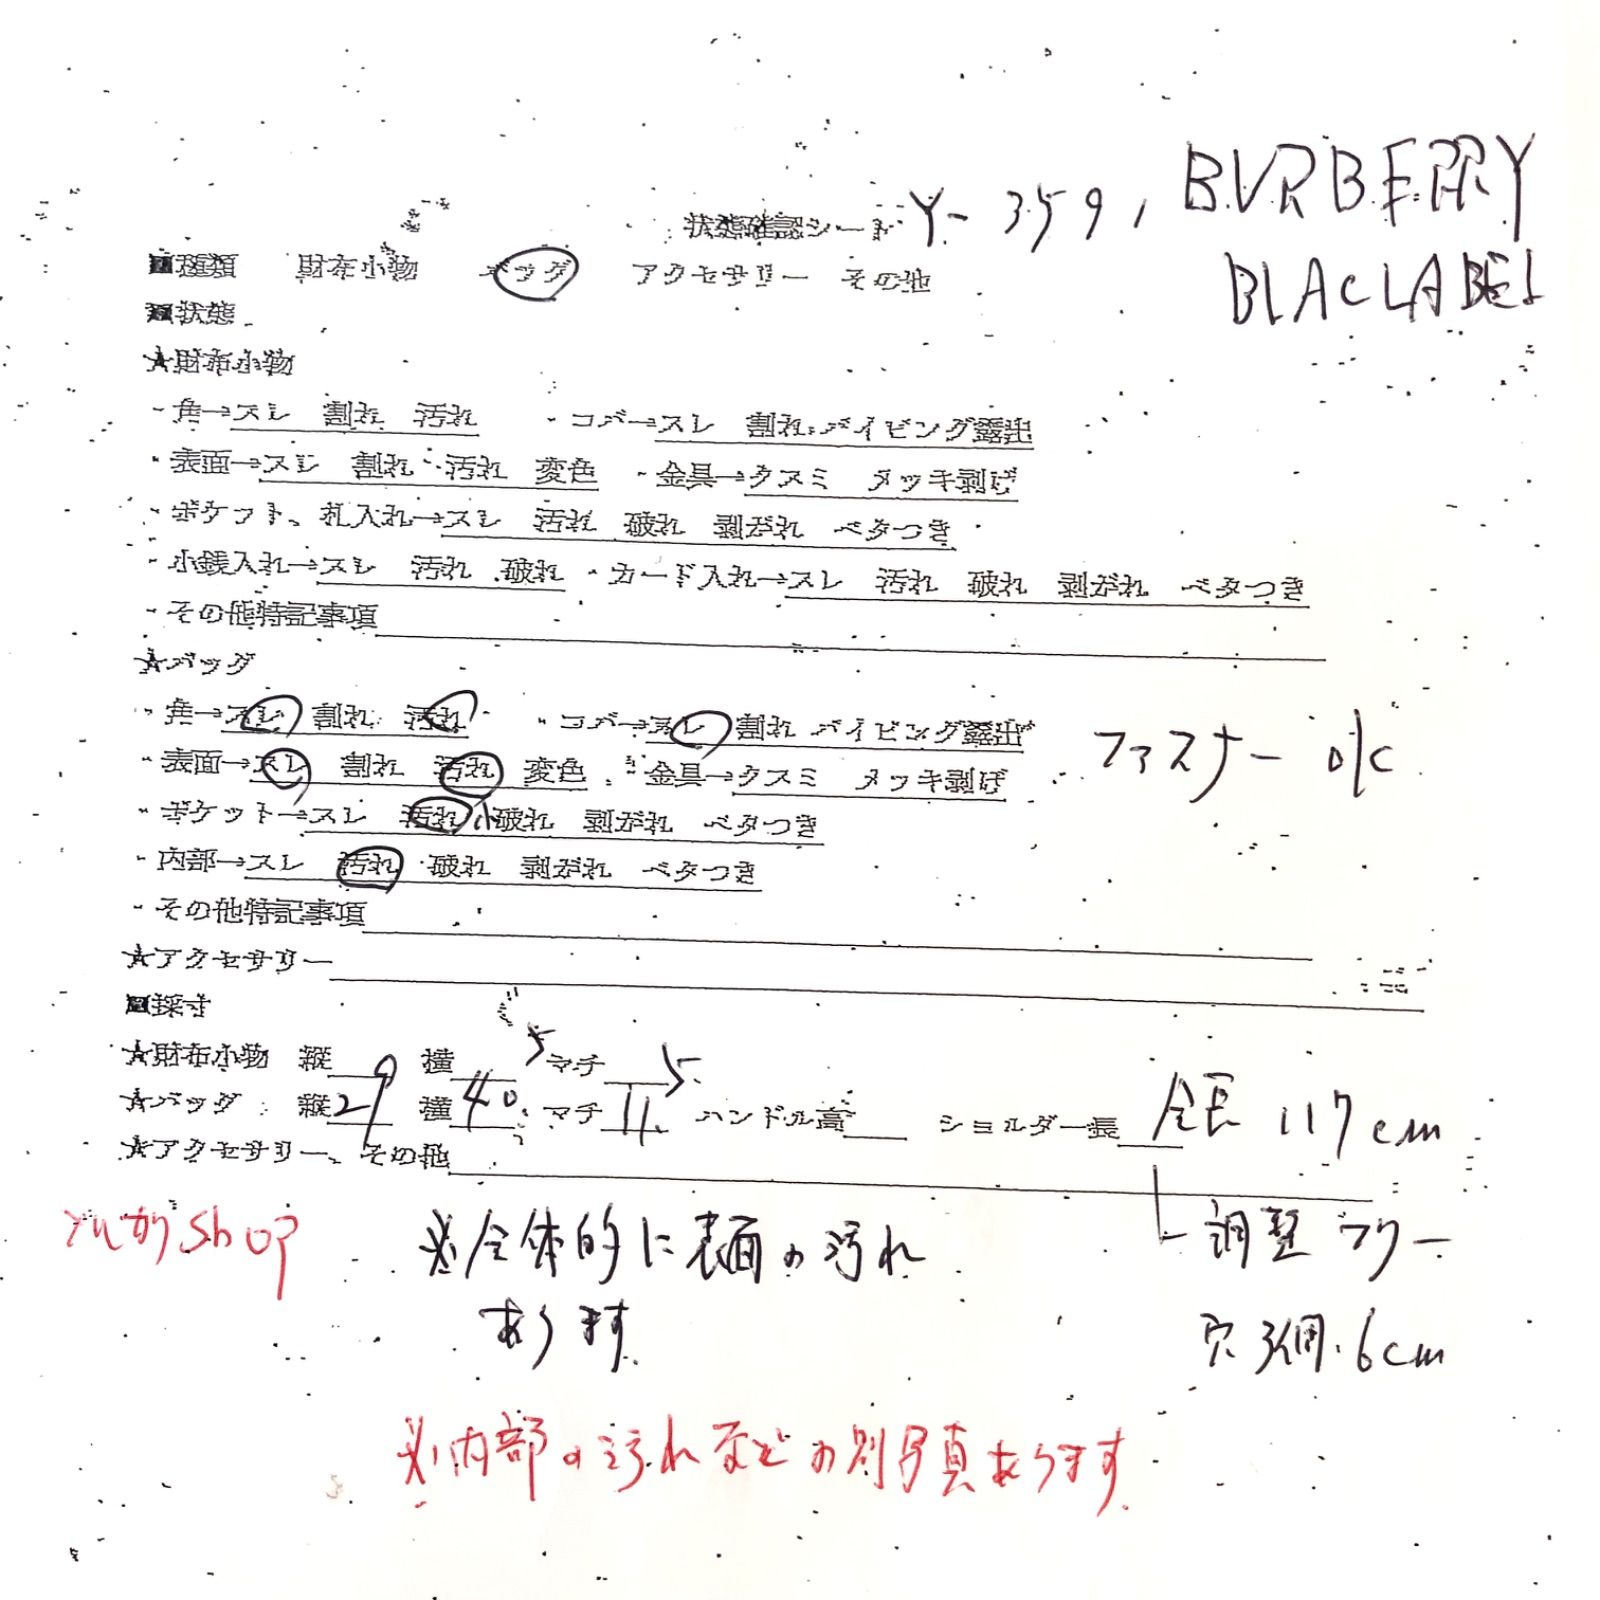 BURBERRY
状態確認シート Y-359,
BLACLABEL
■種類 財布小物 バッグ アクセサリー その他
■状態
★財布小物
・角→スレ 割れ 汚れ ・コバ→スレ 割れ パイピング露出
・表面→スレ 割れ 汚れ 変色 ・金具→クスミ メッキ剥げ
・ポケット、札入れ→スレ 汚れ 破れ 剥がれ ベタつき
・小銭入れ→スレ 汚れ 破れ ・カード入れ→スレ 汚れ 破れ 剥がれ ベタつき
・その他特記事項
★バッグ
・角→スレ 割れ 汚れ ・コバ→スレ 割れ パイピング露出
・表面→スレ 割れ 汚れ 変色 ・金具→クスミ メッキ剥げ ファスナー ok
・ポケット→スレ 汚れ 小破れ 剥がれ ベタつき
・内部→スレ 汚れ 破れ 剥がれ ベタつき
・その他特記事項
★アクセサリー
■採寸
★財布小物 縦 横 マチ
★バッグ 縦29 横40.5 マチ11.5 ハンドル高 ショルダー長 全長 117cm
★アクセサリー、その他
└ 調整フリー
穴 3個. 6cm
shop
※全体的に表面の汚れ
あります
※内部の汚れなどの別写真あります